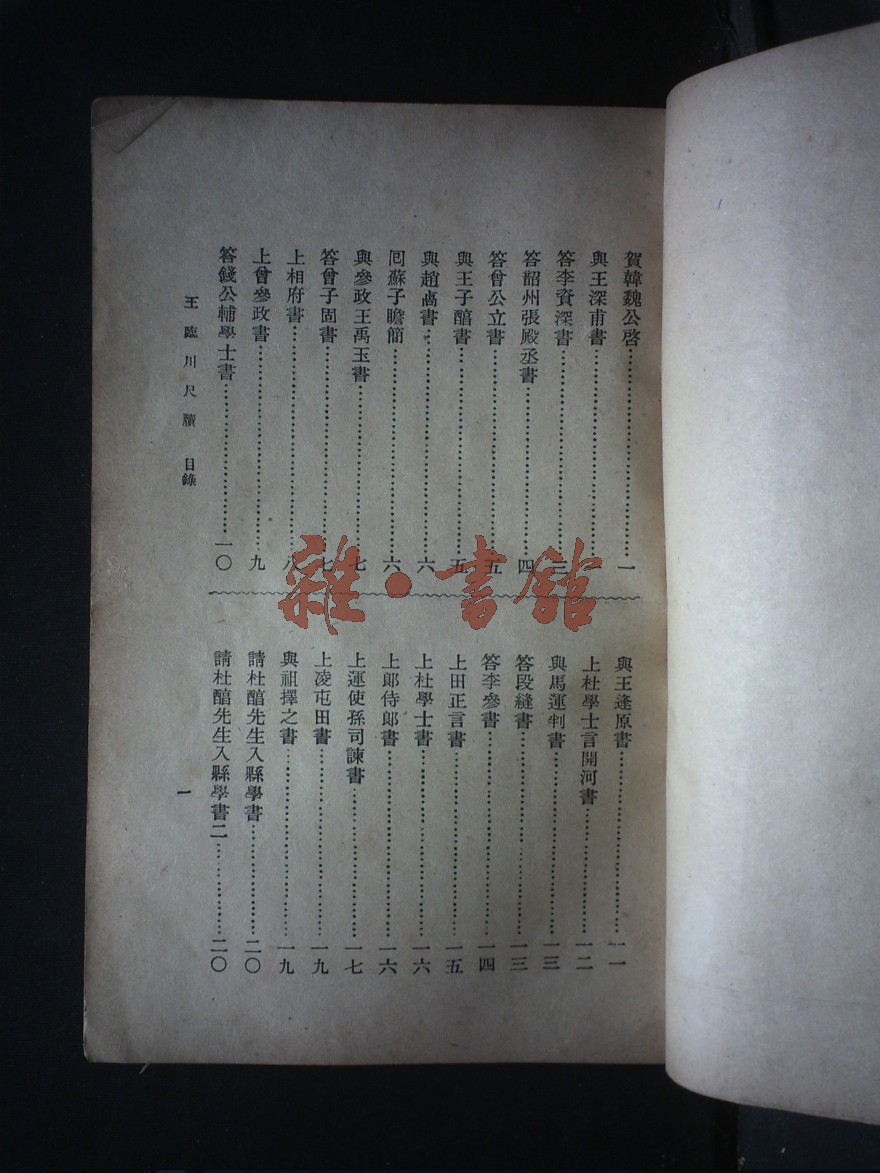 賀韓魏公啓⋯⋯一
與王深甫書⋯⋯
答李資深書⋯⋯三
答韶州張殿丞書⋯⋯四
答曾公立書⋯⋯五
與王子醇書⋯⋯五
與趙卨書⋯⋯六
回蘇子瞻簡⋯⋯六
與參政王禹玉書⋯⋯七
答曾子固書⋯⋯七
上相府書⋯⋯八
上曾參政書⋯⋯九
答錢公輔學士書⋯⋯一〇
與王逢原書⋯⋯一一
上杜學士言開河書⋯⋯一二
與馬運判書⋯⋯一三
答段縫書⋯⋯一三
答李參書⋯⋯一四
上田正言書⋯⋯一五
上杜學士書⋯⋯一六
上郎侍郎書⋯⋯一六
上運使孫司諫書⋯⋯一七
上凌屯田書⋯⋯一九
與祖擇之書⋯⋯一九
請杜醇先生入縣學書⋯⋯二〇
請杜醇先生入縣學書二⋯⋯二〇
王臨川尺牘 目錄
一
雜·書館